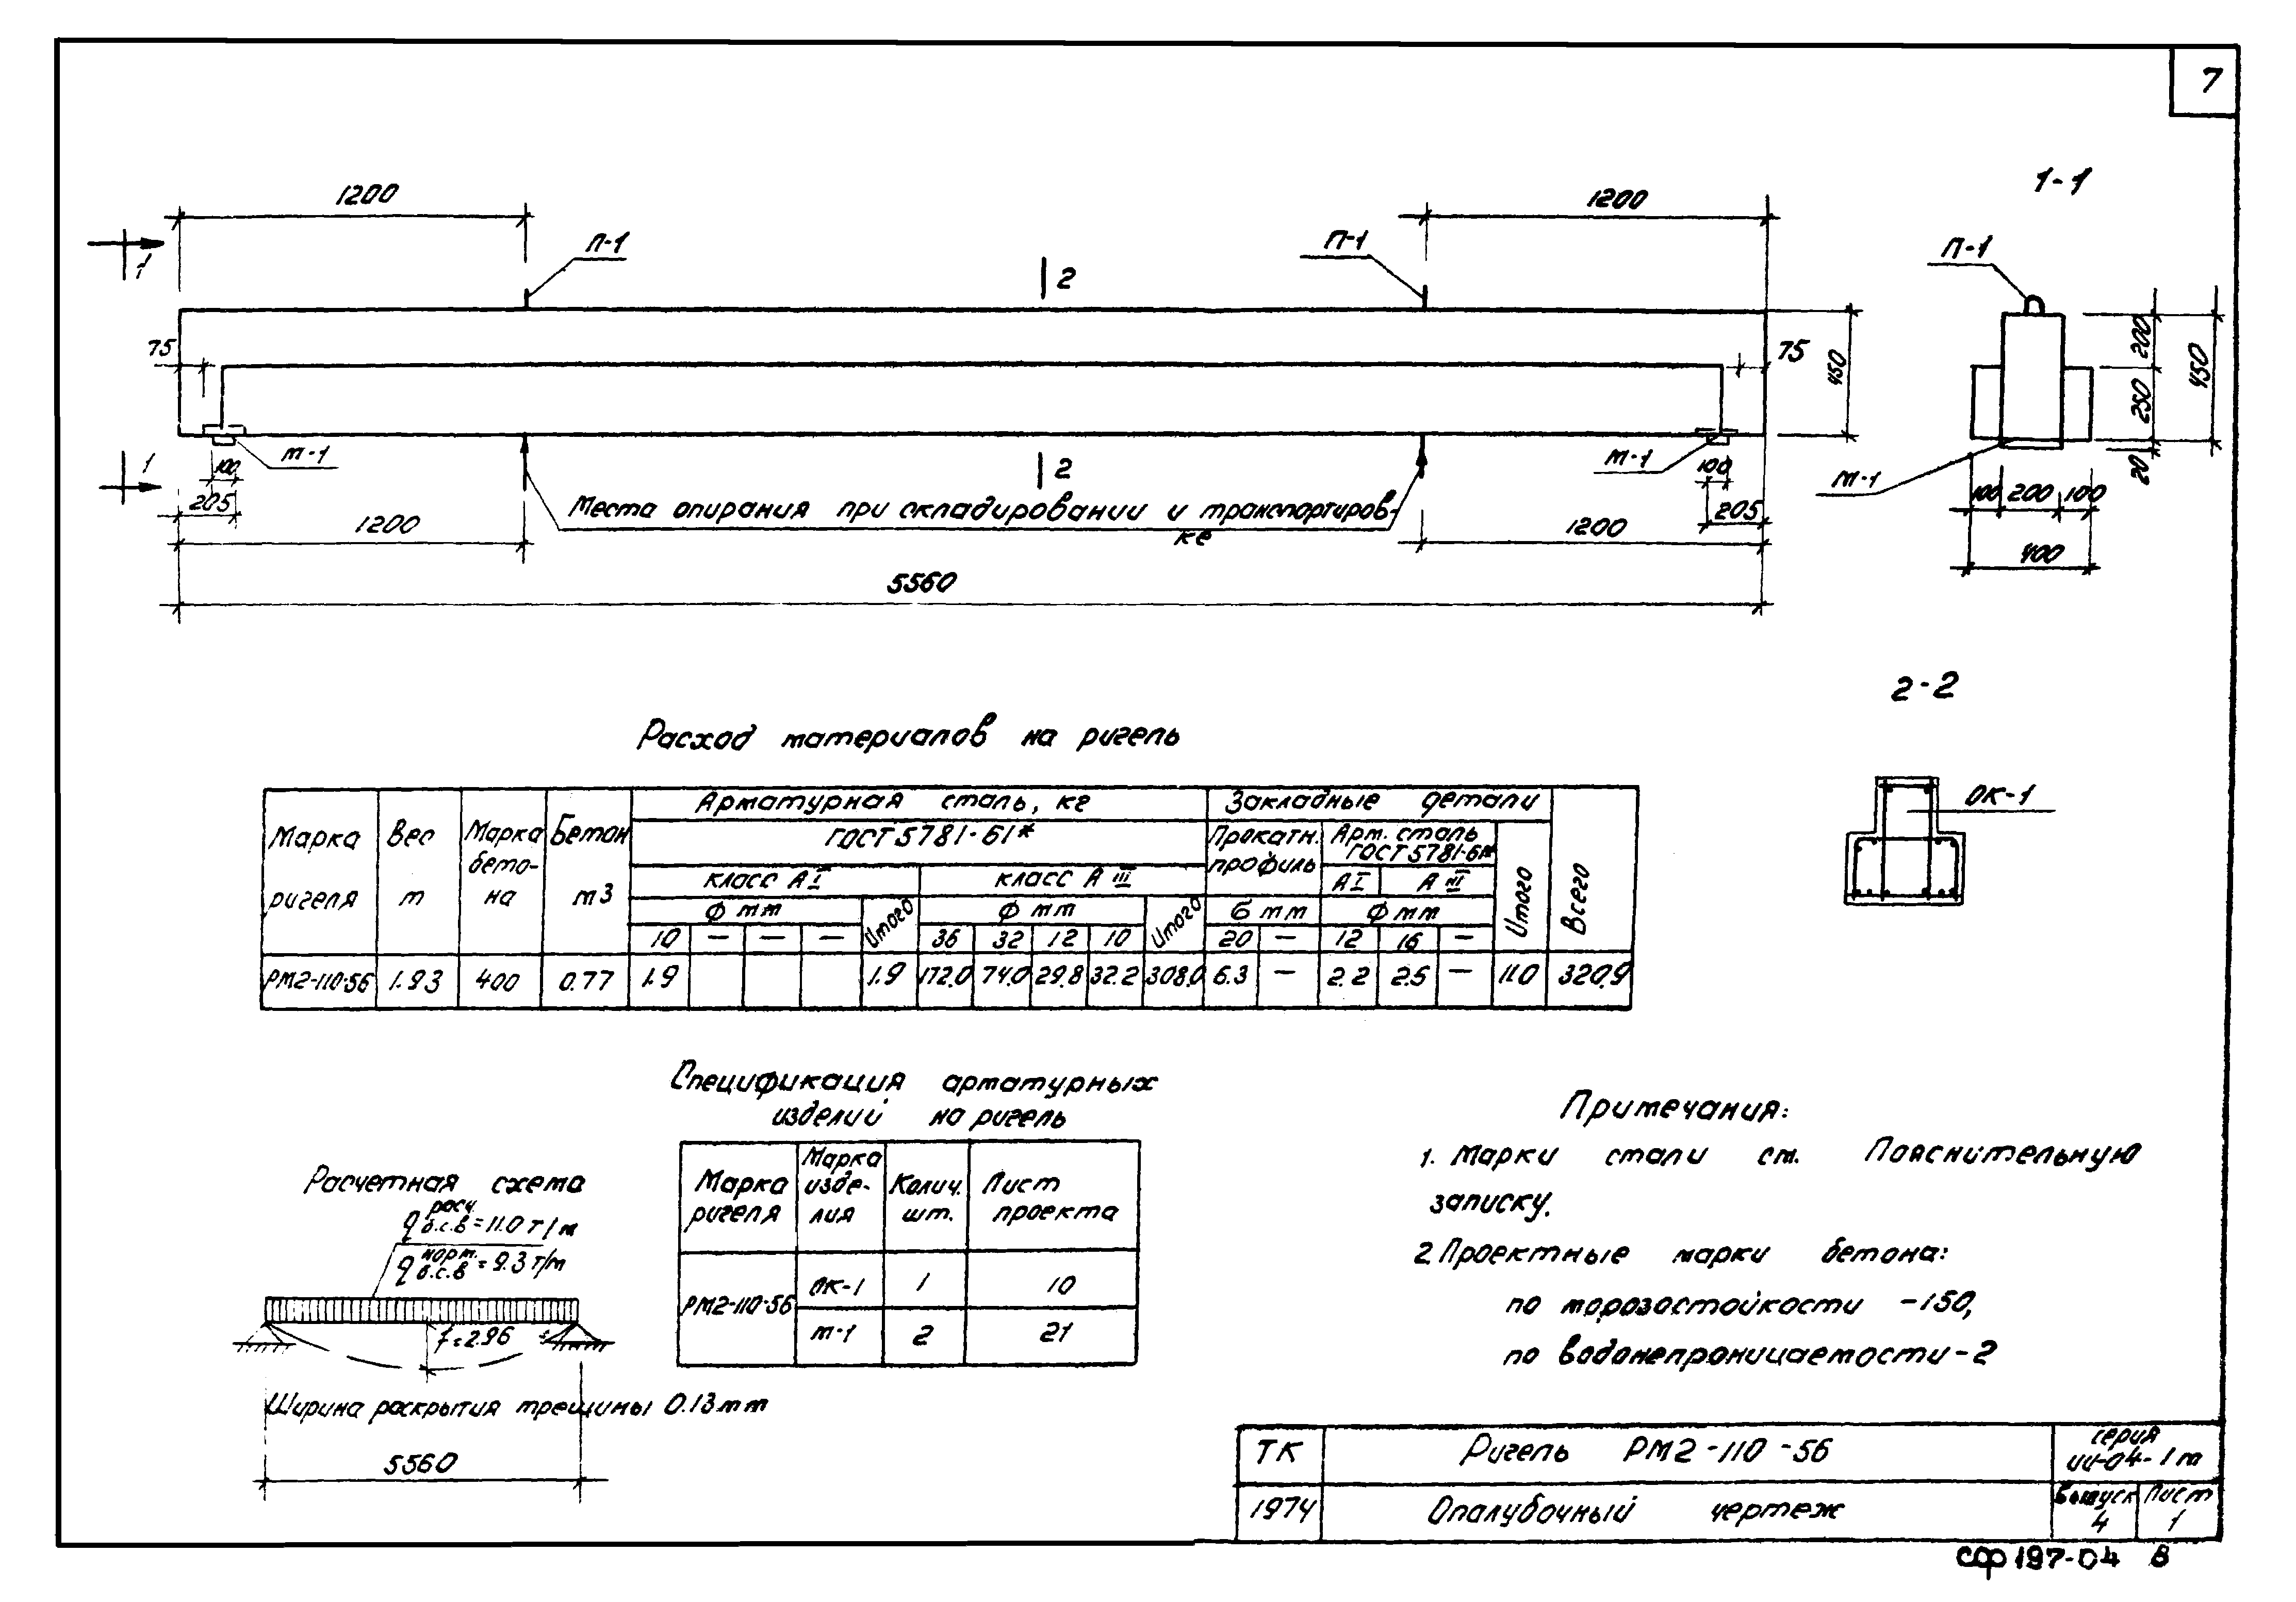 7
1-1
1200
1200
П-1
П-1
П-1
1
2
75
75
450
200
250
450
20
М-1
М-1
М-1
1
100
205
2
100
205
100 200 100
400
Места опирания при складировании и транспортиров-
ке
1200
1200
5560
2-2
ОК-1
Расход материалов на ригель
Марка ригеля
Вес т
Марка бето-
на
Бетон м3
Арматурная сталь, кг
Закладные детали
Всего
ГОСТ 5781-61*
Прокатн. профиль
Арм. сталь
ГОСТ 5781-61*
Итого
класс А I
класс А III
А I
А III
Ф мм
Итого
Ф мм
Итого
б мм
Ф мм
10 — — —
36 32 12 10
20 —
12 16 —
РМ2-110-56 1.93 400 0.77 1.9 1.9 172.0 74.0 29.8 32.2 308.0 6.3 — 2.2 2.5 — 11.0 320.9
Спецификация арматурных
изделий на ригель
Марка ригеля
Марка
изде-
лия
Колич. шт.
Лист проекта
РМ2-110-56
ОК-1 1 10
М-1 2 21
Расчетная схема
q расч. б.с.в = 11.0 т/м
q норм. б.с.в = 9.3 т/м
f=2.96
Ширина раскрытия трещины 0.13мм
5560
Примечания:
1. Марки стали см. Пояснительную
записку.
2. Проектные марки бетона:
по морозостойкости -150,
по водонепроницаемости-2
ТК
Ригель РМ2-110-56
серия
ИИ-04-1м
1974
Опалубочный чертеж
Выпуск
4
Лист
1
СФ 197-04 8